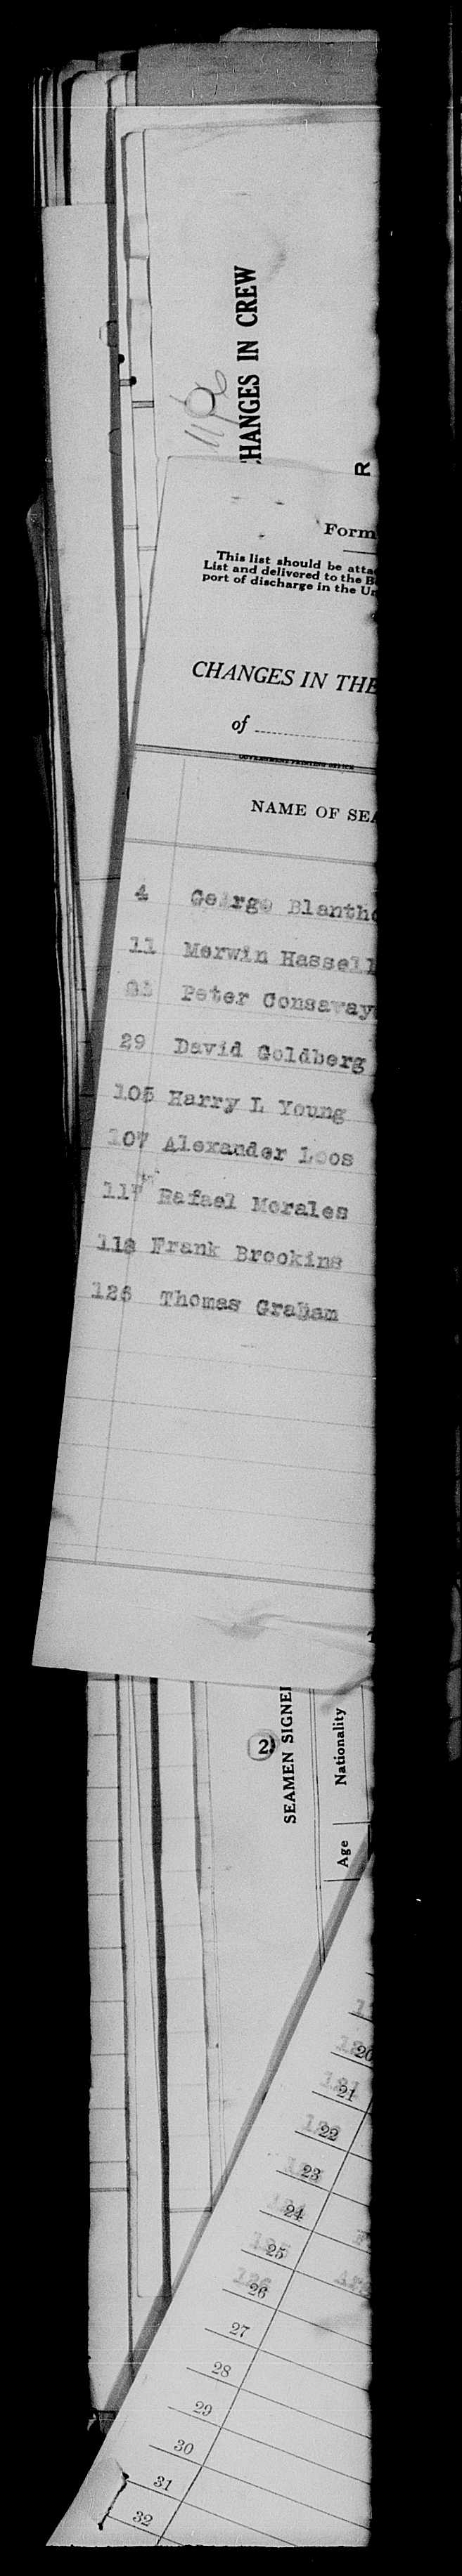 CHANGES IN CREW
R
Form
This list should be atta
List and delivered to the B
port of discharge in the Un
CHANGES IN THE
of
GOVERNMENT PRINTING OFFICE
NAME OF SEA
4 George Blantho
11 Merwin Hassell
Peter Consaway
29 David Goldberg
105 Harry L Young
107 Alexander Loos
Rafael Morales
118 Frank Brookins
126 Thomas Graham
2
SEAMEN SIGNE
Nationality
Age
20
121 21
122 22
23
24
125 25
126 26
27
28
29
30
31
32